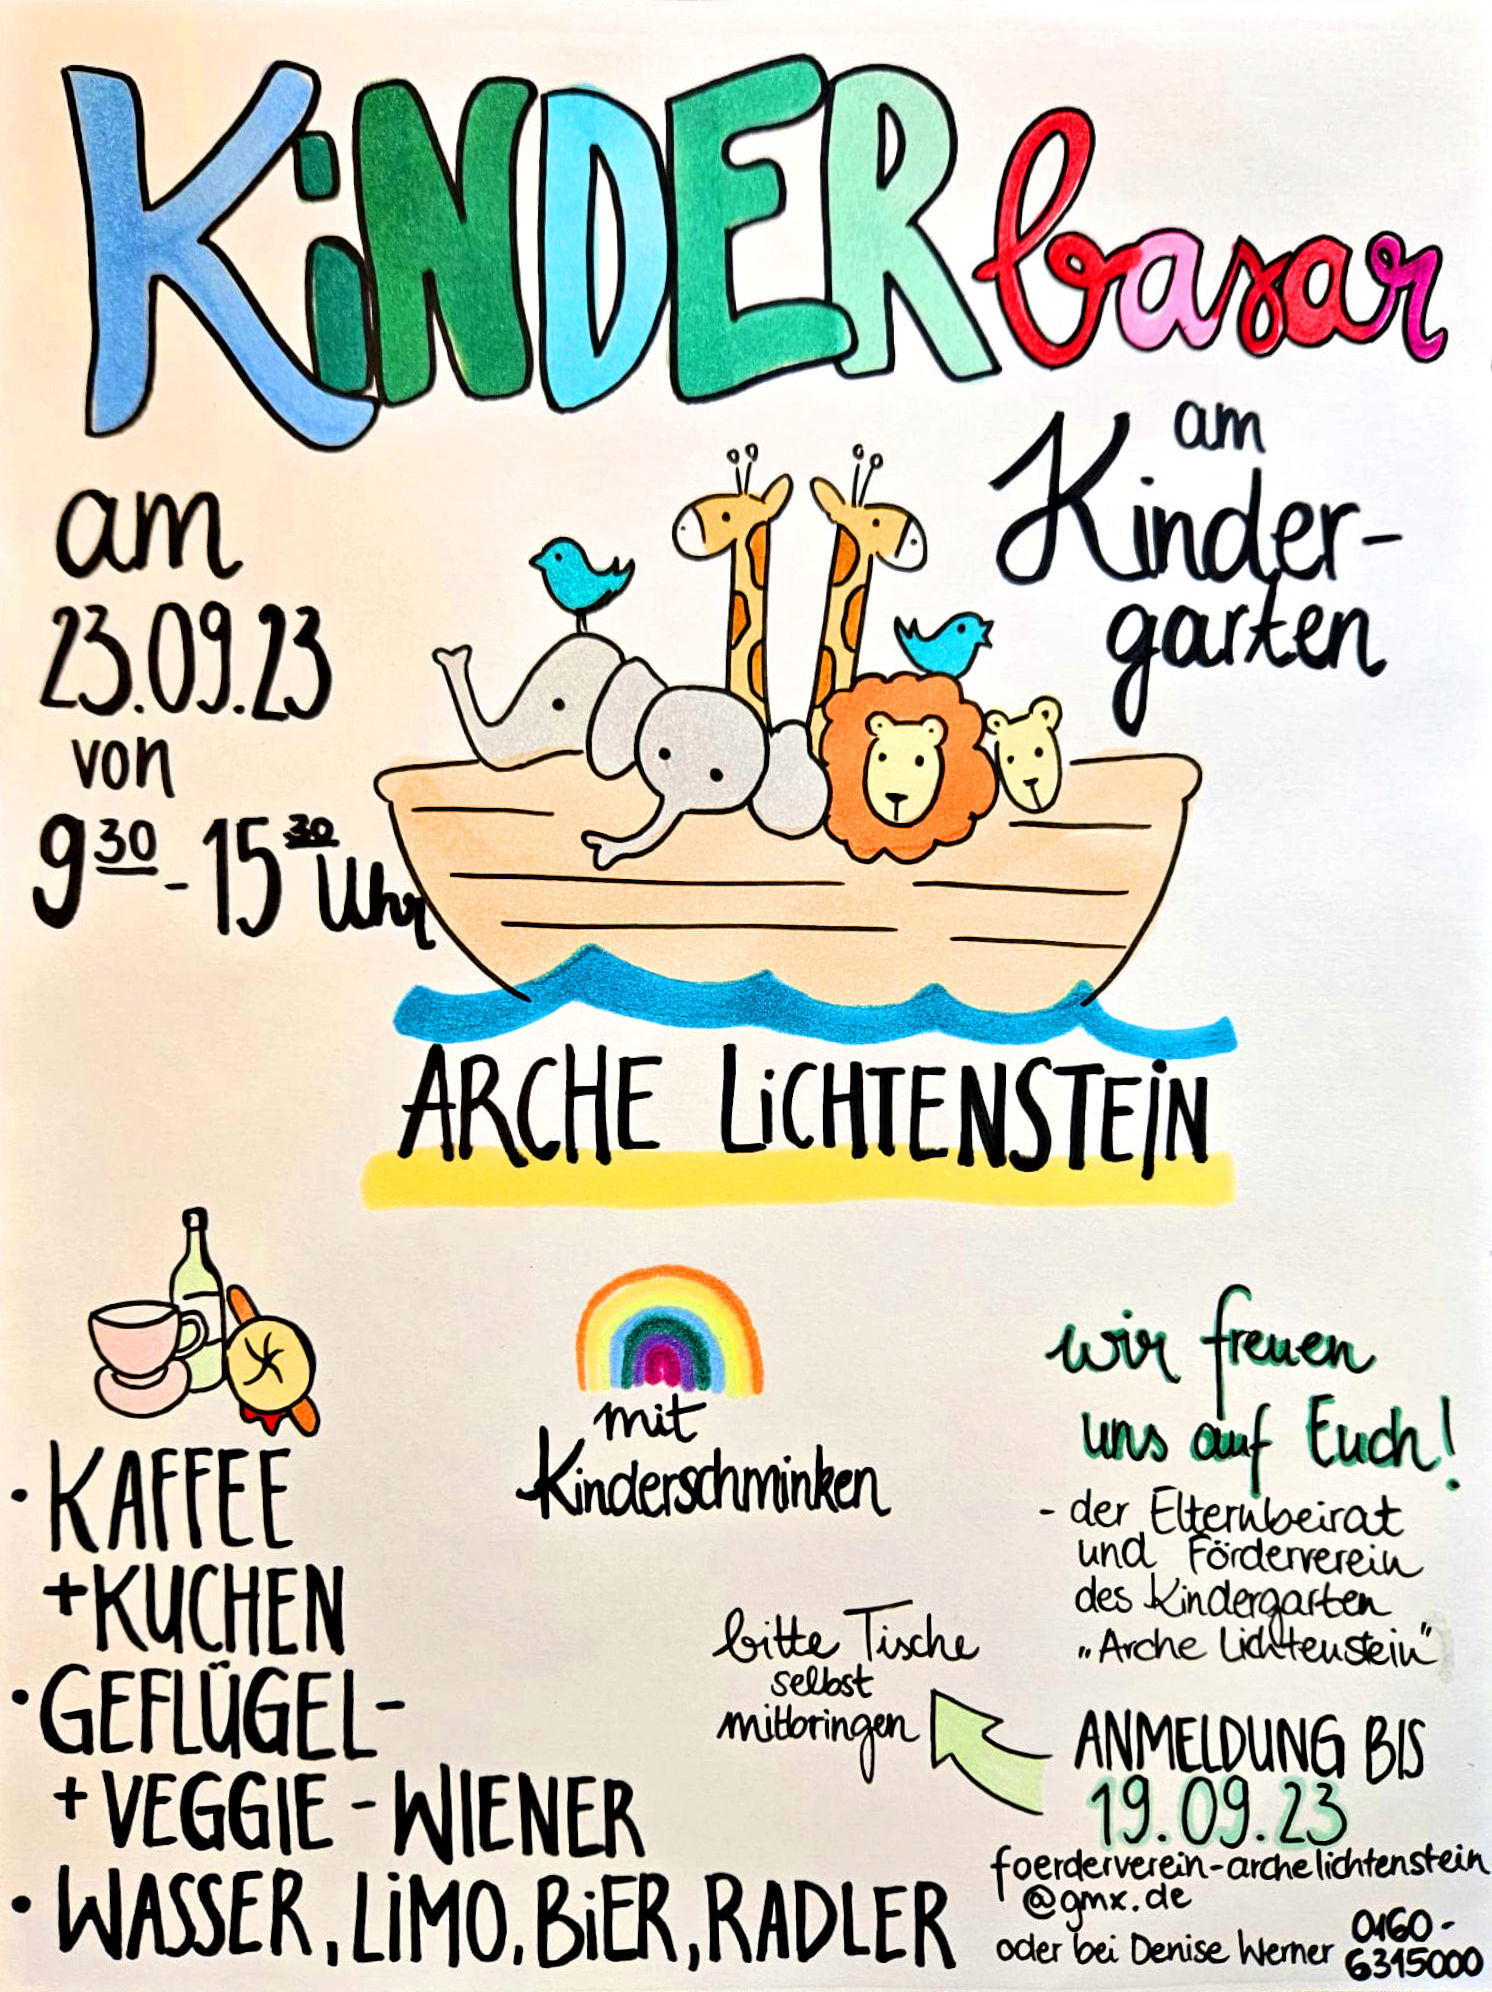 KiNDER basar
am
Kinder-
garten
am
23.09.23
von
9 30 - 15 30 Uhr
ARCHE LiCHTENSTEiN
mit
Kinderschminken
wir freuen
uns auf Euch!
- der Elternbeirat
und Förderverein
des Kindergarten
„Arche Lichtenstein"
• KAFFEE
+ KUCHEN
• GEFLÜGEL-
+ VEGGIE - WIENER
• WASSER, LiMO, BiER, RADLER
bitte Tische
selbst
mitbringen
ANMELDUNG BIS
19.09.23
foerderverein-archelichtenstein
@gmx.de
oder bei Denise Werner 0160-
6315000